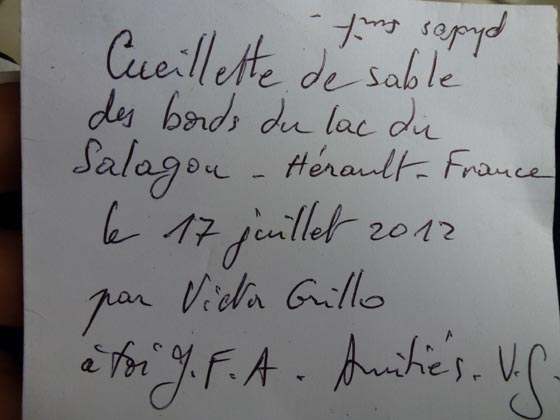 Cueillette de sable
des bords du lac du
Salagou - Hérault - France
le 17 juillet 2012
par Victor Grillo
à toi J.F.A. Amitiés. V.G.